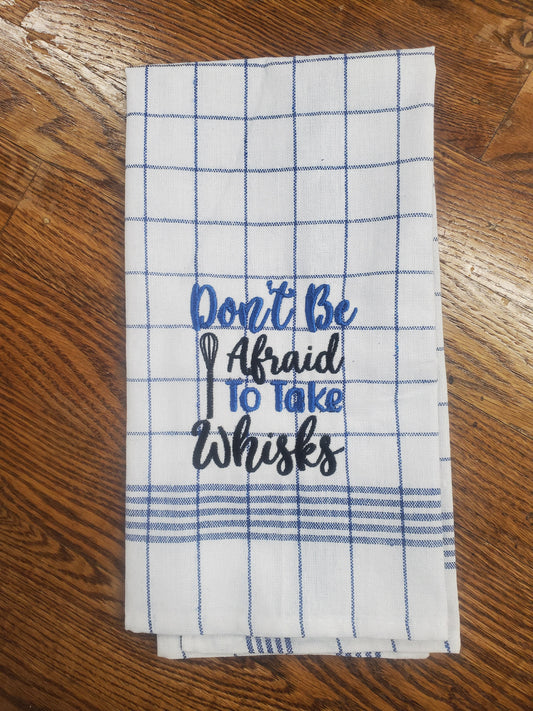 Don't Be
Afraid
To Take
Whisks